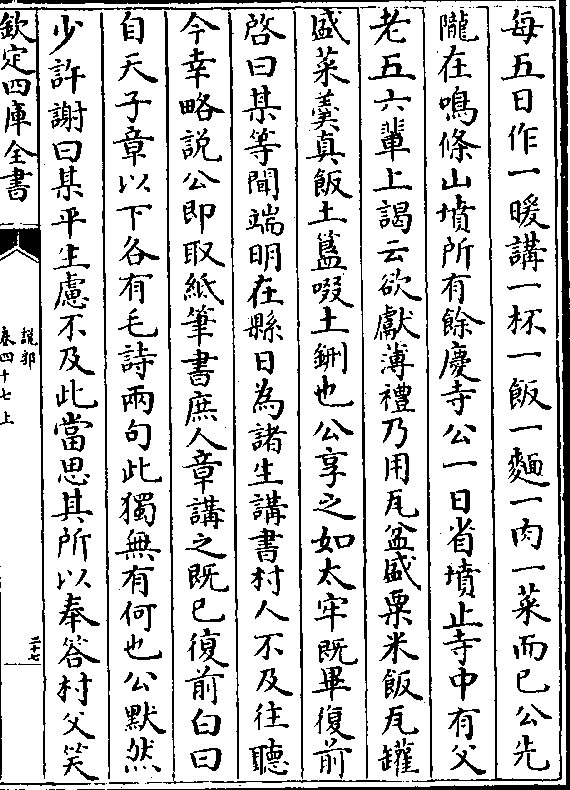 每五日作一暖講一杯一飯一麵一肉一菜而已公先
隴在鳴條山墳所有餘慶寺公一日省墳止寺中有父
老五六輩上謁云欲獻薄禮乃用瓦盆盛粟米飯瓦罐
盛菜羹真飯土簋啜土鉶也公享之如太牢既畢復前
啓曰某等聞端明在縣日為諸生講書村人不及往聽
今幸略說公即取紙筆書庶人章講之既已復前白曰
自天子章以下各有毛詩兩句此獨無有何也公默然
少許謝曰某平生慮不及此當思其所以奉答村父笑
欽定四庫全書
說郛
卷四十七上
二十七